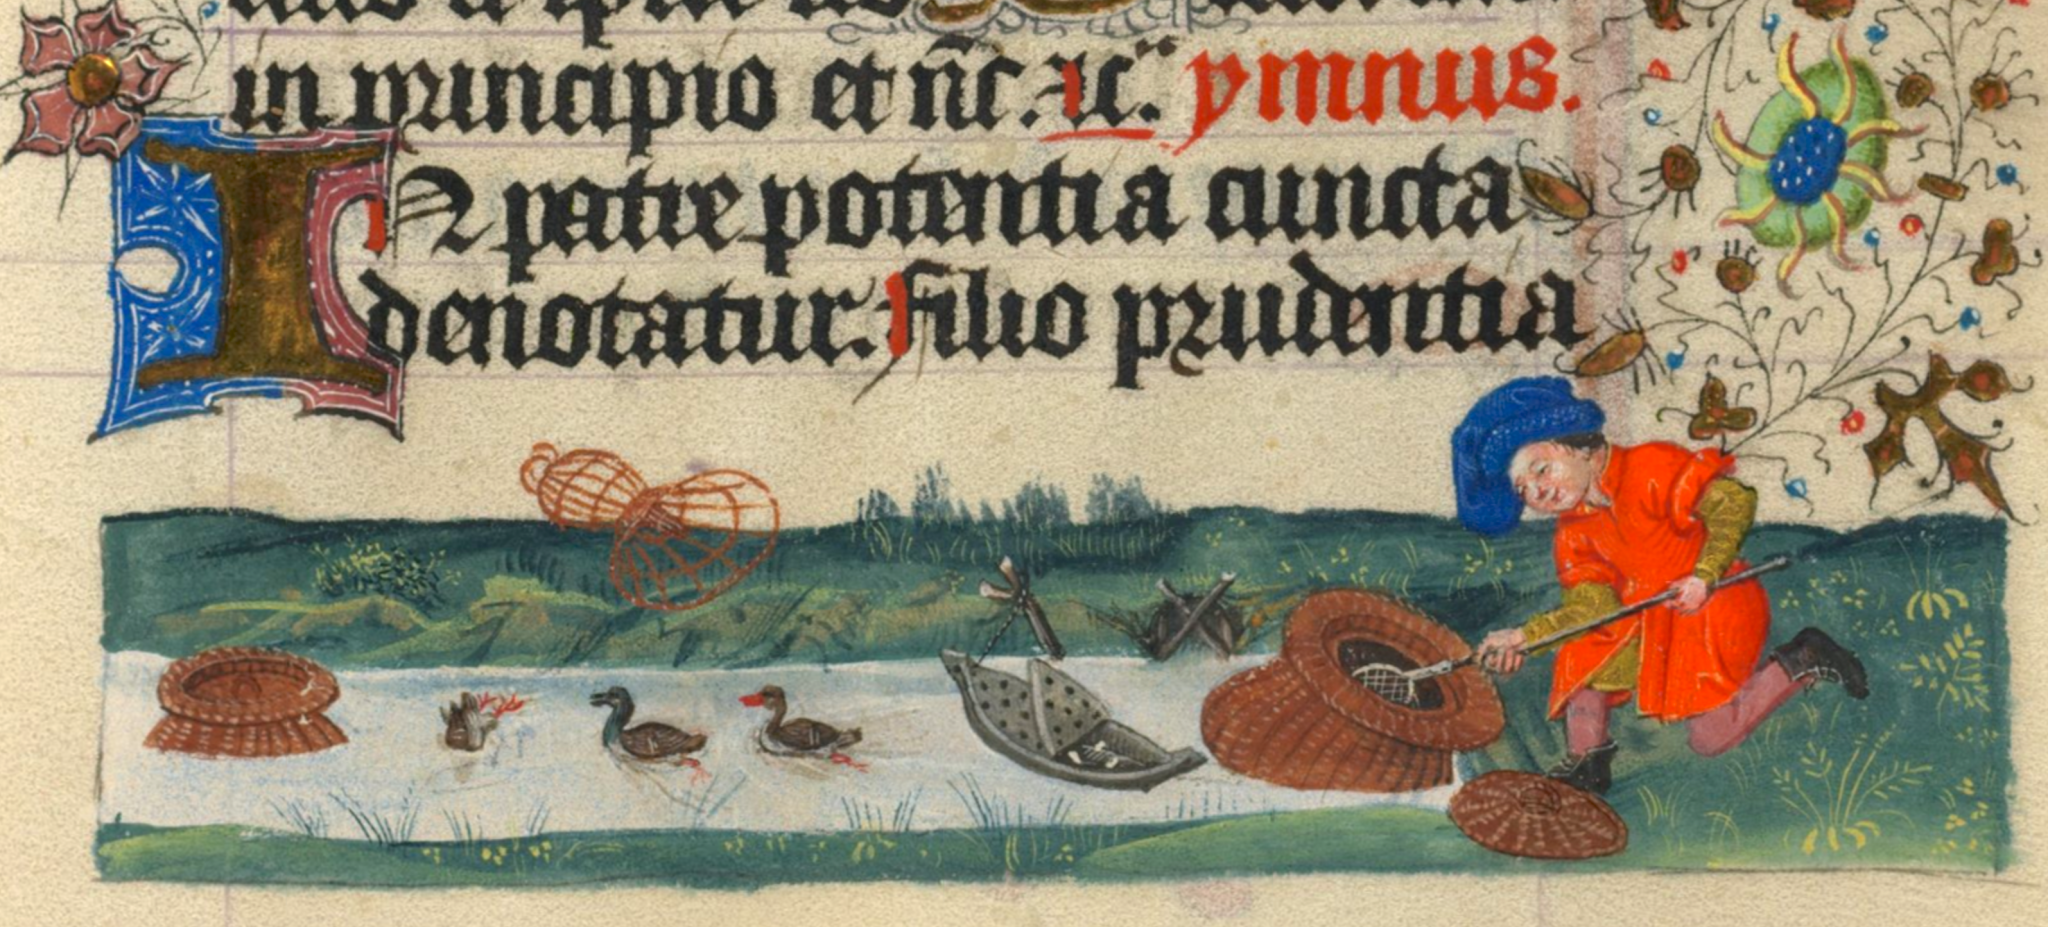 in principio et nc̄. ac̈. ymnus.
In patre potentia cuncta
denotatur. filio prudentia